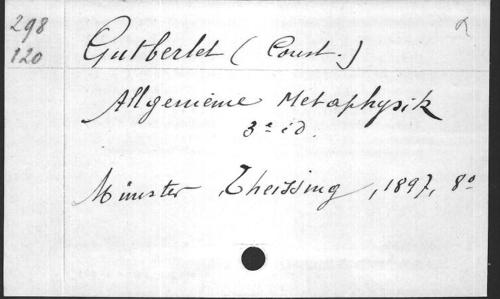 298
120
Gutberlet (Const.)
Allgemeine Metaphysik
3e éd.
Münster, Theissing, 1897, 8º